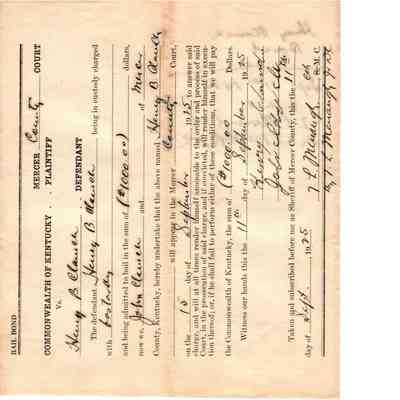 BAIL BOND
MERCER County COURT
COMMONWEALTH OF KENTUCKY . . PLAINTIFF
Vs.
Henry B Claunch DEFENDANT
The defendant Henry B Claunch being in custody charged
with
and being admitted to bail in the sum of ($1000.00) dollars,
now we, John Claunch and of Mercer
County, Kentucky, hereby undertake that the above named Henry B Claunch
will appear in the Mercer County Court,
on the 15 day of September 1925 to answer said
charge, and will at all times render himself amenable to the order and process of said
Court, in the prosecution of said charge, and if convicted, will render himself in execu-
tion thereof; or, if he shall fail to perform either of these conditions, that we will pay
the Commonwealth of Kentucky, the sum of ($1000.00 Dollars.
Witness our hands this the 11th day of September 1925
Henry Claunch
John Claunch
Taken and subscribed before me as Sheriff of Mercer County, this the 11th
day of Sept. 1925
S. M. C.